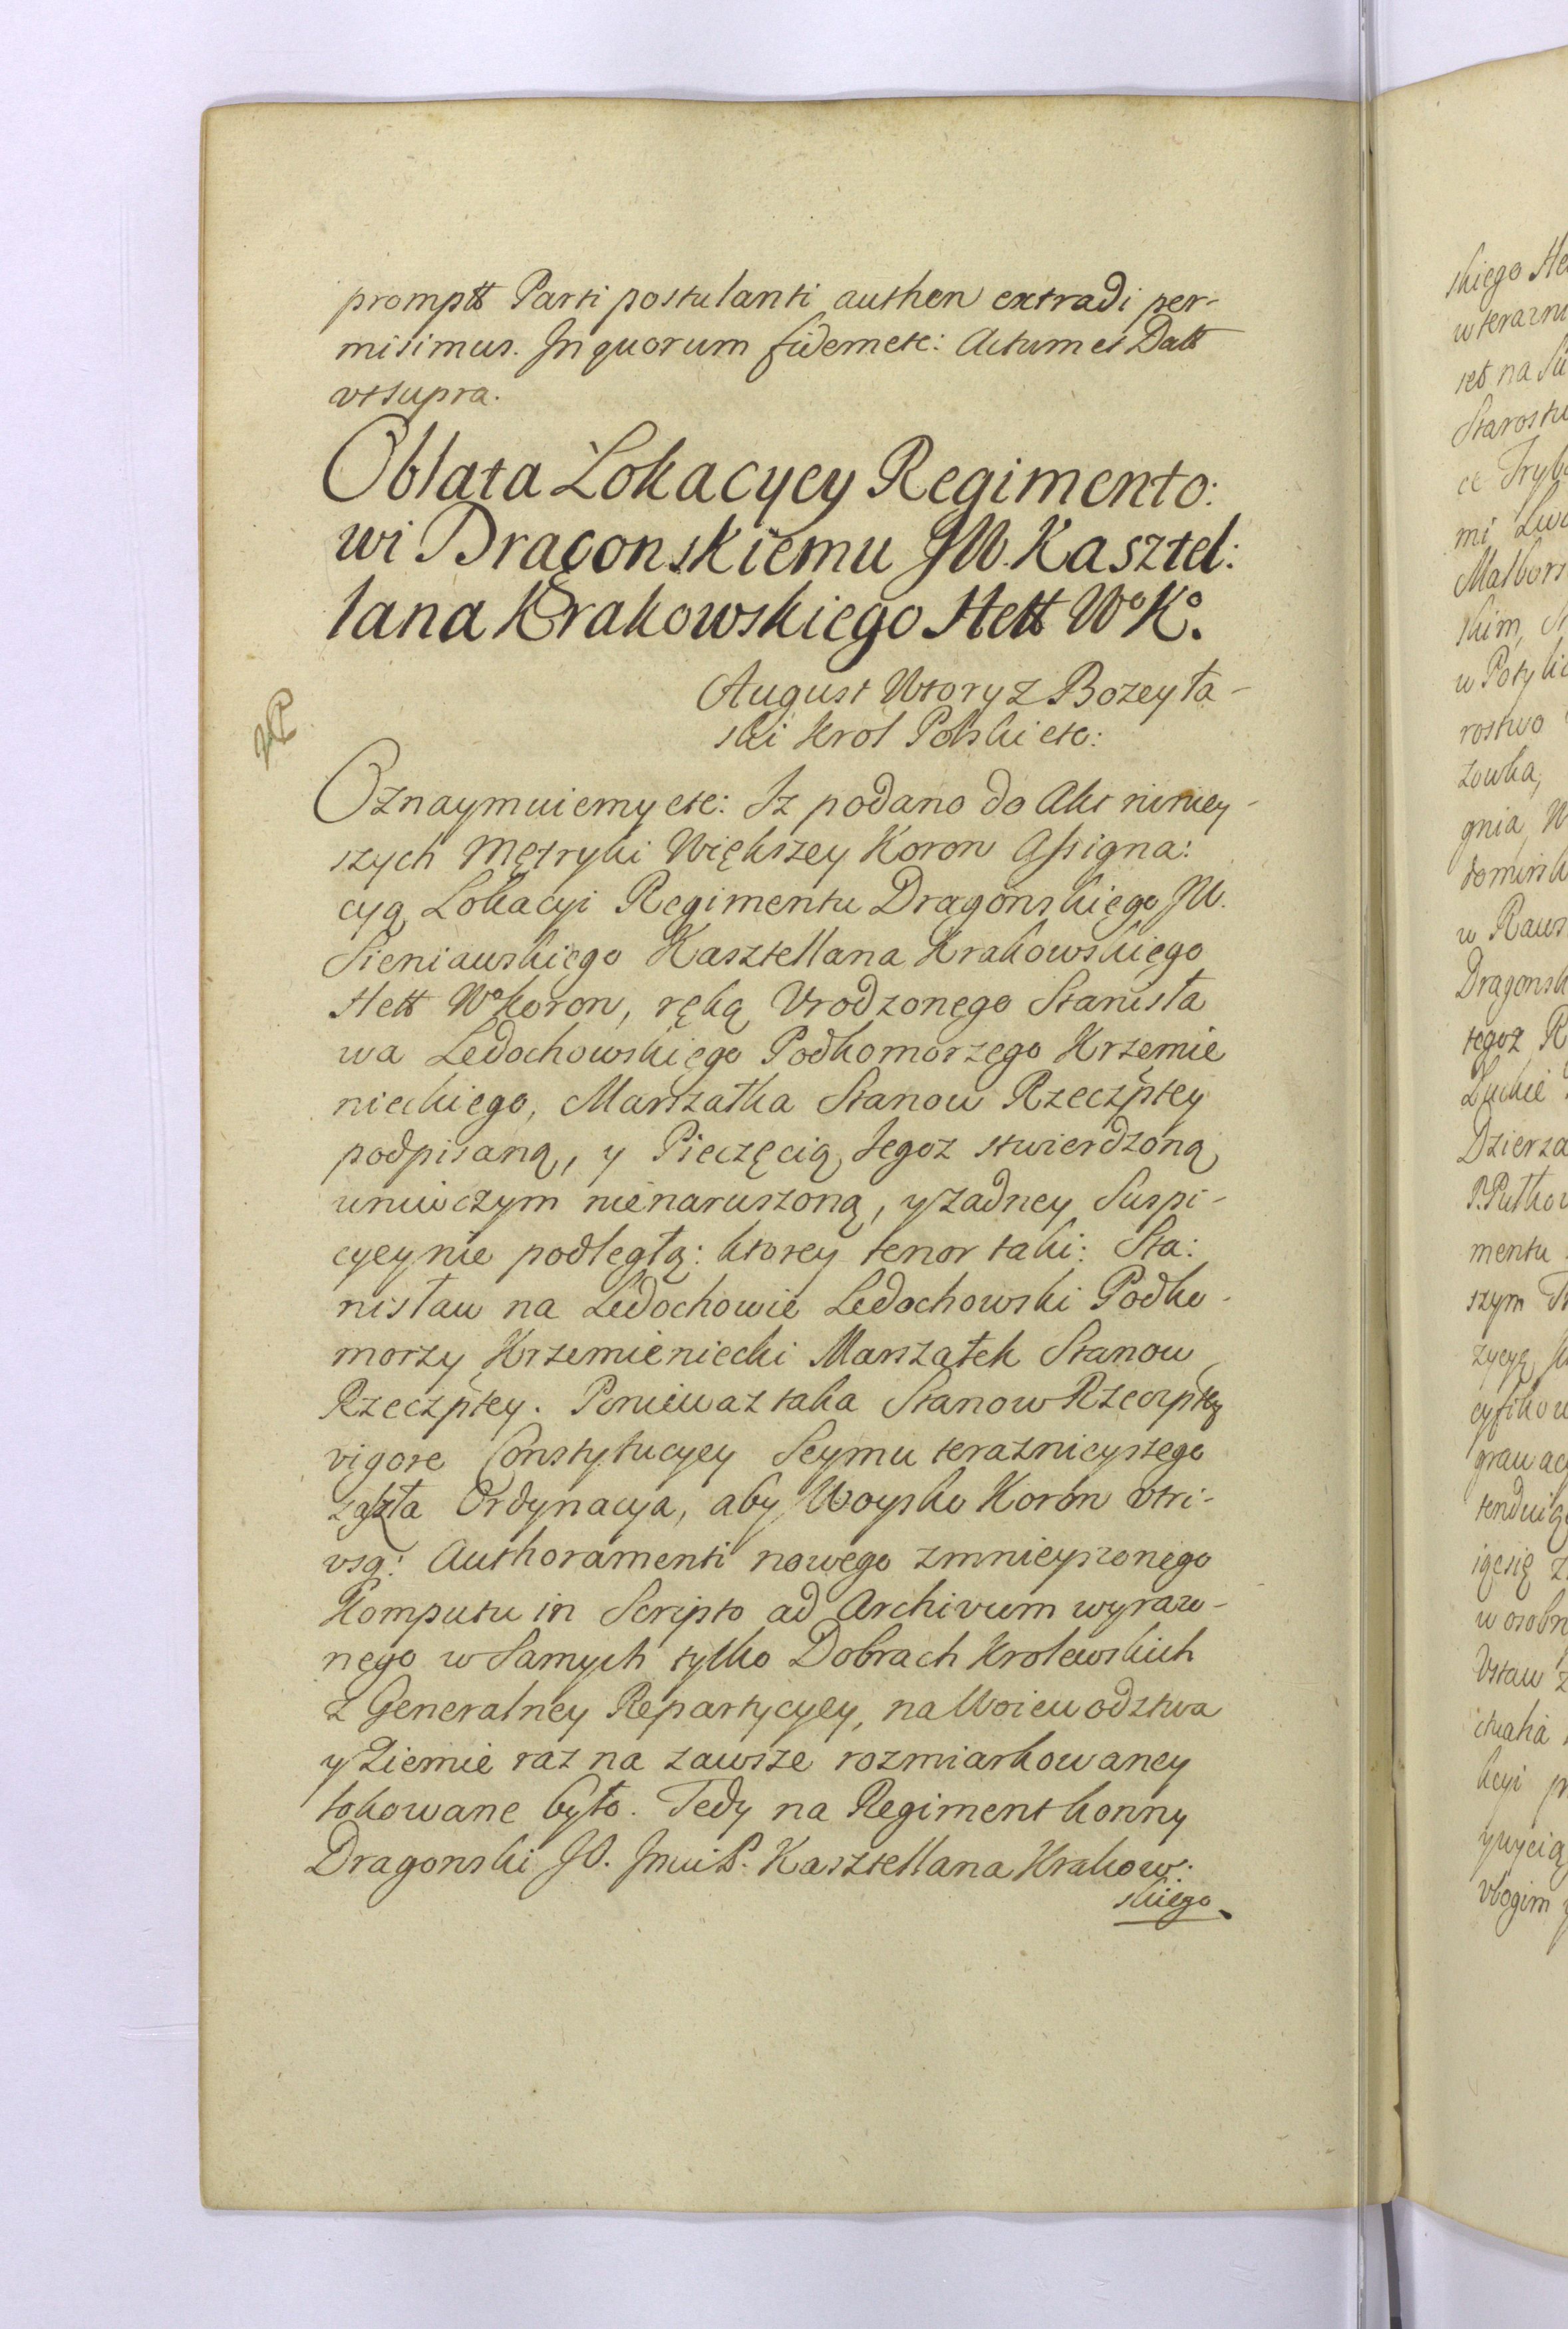 promptt Parti postulanti authen extradi per-
misimus. In quorum fidem etc: Actum et Datt
vt supra.
Oblata Lokacyey Regimento:
wi Dragonskiemu JW. Kasztel:
lana Krakowskiego Hett Wo Ko.
August Wtory z Bozey ła-
ski Krol Polski etc:
Oznaymuiemy etc: Iz podano do Akt niniey-
szych Mętryki Większey Koron Assigna:
cyą Lokacyi Regimentu Dragonskiego JW.
Sieniawskiego Kasztellana Krakowskiego
Hett Wo Koron, ręką Vrodzonego Stanisła
wa Ledochowskiego Podkomorzego Krzemie
nieckiego, Marszałka Stanow Rzeczptey
podpisaną, y Pieczęcią Iegoz stwierdzoną
uniwczym nienaruszoną, y zadney Suspi-
cyey nie podległą: ktorey tenor taki: Sta:
nisław na Ledochowie Ledochowski Podko-
morzy Krzemieniecki Marszałek Stanow
Rzeczptey. Poniewaz taka Stanow Rzeczptey
vigore Constytucyey Seymu teraznieyszego
zaszła Ordynacya, aby Woysko Koron vtri-
vsq: Authoramenti nowego zmnieyszonego
Komputu in Scripto ad Archivum wyraz-
nego w Samych tylko Dobrach Krolewskich
z Generalney Repartycyey, na Woiewodztwa
y Ziemie raz na zawsze rozmiarkowaney
lokowane było. Tedy na Regiment konny
Dragonski JW. Jmci P. Kasztellana Krakow:
skiego
skiego
w terazni
set na
Starostw
ce
mi
Malbors
skim,
w
rostwo
zowka,
gnia,
w Raws
Dragonsk
tegoz
Dzierza
mentu
szym
zycyę
w osobn
Vstaw
vbogim